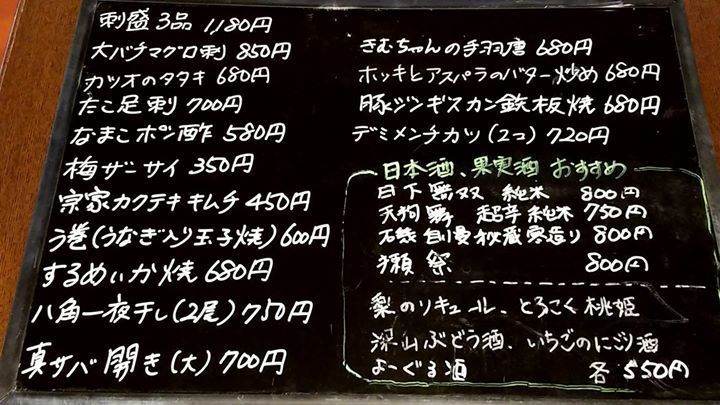 刺盛3品 1,180円
大バチマグロ刺 850円
カツオのタタキ 680円
たこ足刺 700円
なまこポン酢 580円
梅ザーサイ 350円
宗家カクテキキムチ 450円
う巻(うなぎ入り玉子焼) 600円
するめいか焼 680円
八角一夜干し(2尾) 750円
真サバ開き(大) 700円
きむちゃんの手羽唐 680円
ホッキとアスパラのバター炒め 680円
豚ジンギスカン鉄板焼 680円
デミメンチカツ(2コ) 720円
日本酒、果実酒 おすすめ
日下無双 純米 800円
天狗舞 超辛純米 750円
石鎚 秘蔵寒造り 800円
獺祭 800円
梨のリキュール、とろこく桃姫
深山ぶどう酒、いちごのにごり酒
よーぐる酒 各550円